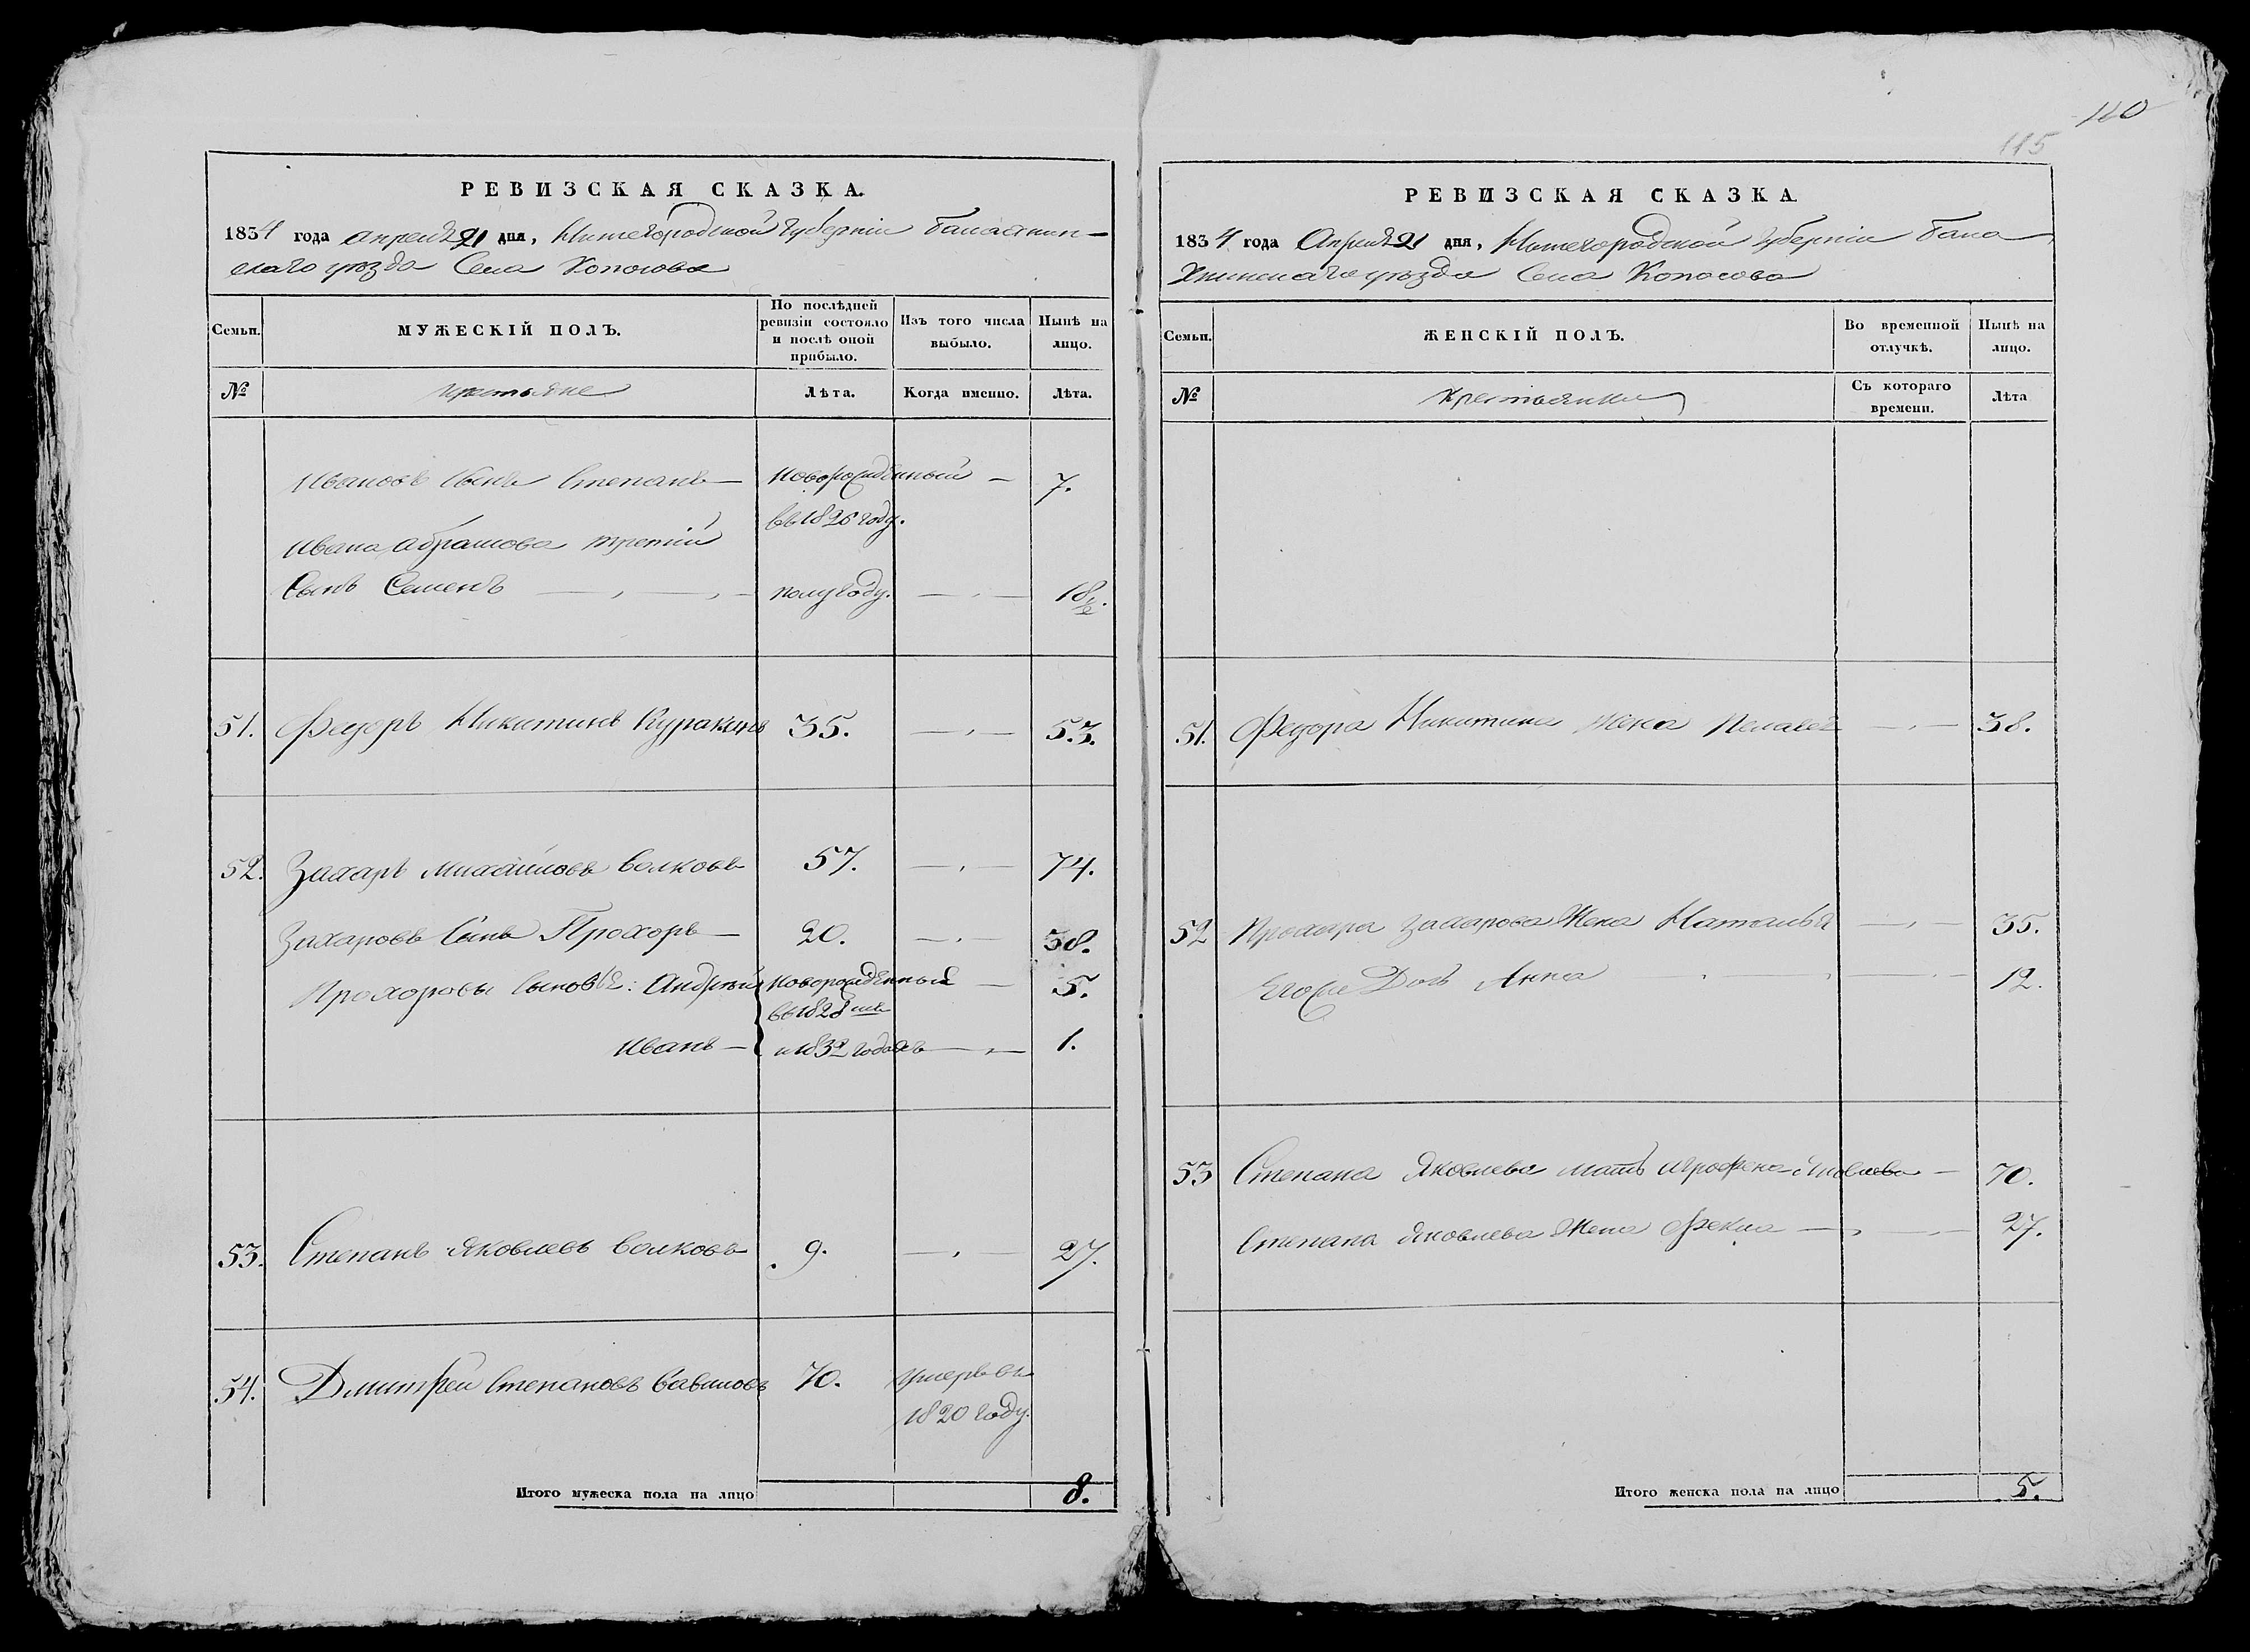 110
115
РЕВИЗСКАЯ СКАЗКА.
1834 года апреля 21 дня, Нижегородской губернии Балахнин-
скаго уѣзда Села Копосова
Семьи.
МУЖЕСКІЙ ПОЛЪ.
По послѣдней ревизіи состояло и послѣ оной прибыло.
Изъ того числа выбыло.
Нынѣ на лицо.
№
крестьяне
Лѣта.
Когда именно.
Лѣта.
Ивановъ сынъ Степанъ — новорожденный — 7.
въ 1826 году.
Ивана Абрамова третій
сынъ Семенъ — полугоду. — 18½.
51. Федоръ Никитинъ Куракинъ 35. — 53.
52. Захаръ Михайловъ Волковъ 57. — 74.
Захаровъ сынъ Прохоръ — 20. — 38.
Прохоровы сыновье: Андрей новорожденные — 5.
въ 1828мъ
Иванъ — и 1832 годахъ — 1.
53. Степанъ Яковлевъ Волковъ 9. — 27.
54. Дмитрей Степановъ Савиновъ 70. умеръ въ
1820 году.
Итого мужеска пола на лицо 8.
РЕВИЗСКАЯ СКАЗКА.
1834 года Апреля 21 дня, Нижегородской губернии Бала
хнинскаго уѣзда Села Копосова
Семьи.
ЖЕНСКІЙ ПОЛЪ.
Во временной отлучкѣ.
Нынѣ на лицо.
№
крестьянки
Съ котораго времени.
Лѣта
51. Федора Никитина жена Пелагея — 38.
52 Прохора Захарова жена Наталья — 35.
Его же дочь Анна — 12.
53 Степана Яковлева мать Агрофена Яковлева — 70.
Степана Яковлева жена Фекла — 27.
Итого женска пола на лицо 5.